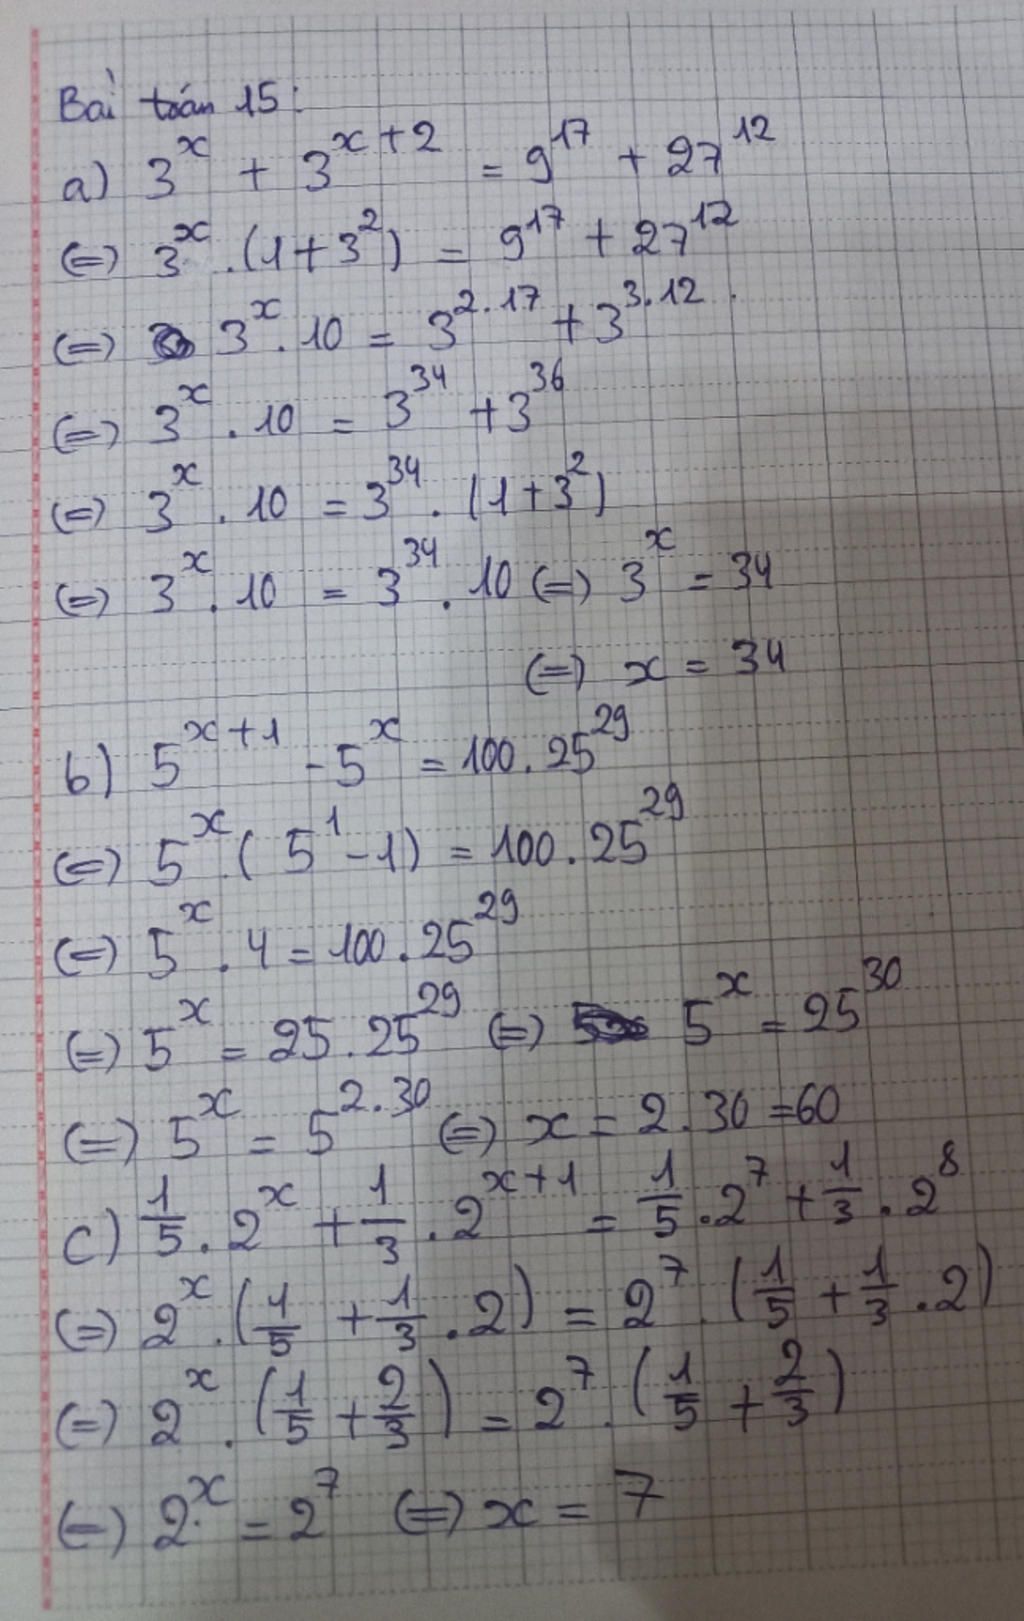 Bài toán 15:
a) 3^x + 3^{x+2} = 9^{17} + 27^{12}
(=) 3^x . (1 + 3^2) = 9^{17} + 27^{12}
(=) 3^x . 10 = 3^{2.17} + 3^{3.12}
(=) 3^x . 10 = 3^{34} + 3^{36}
(=) 3^x . 10 = 3^{34} . (1 + 3^2)
(=) 3^x . 10 = 3^{34} . 10 (=) 3^x = 34
(=) x = 34
b) 5^{x+1} - 5^x = 100 . 25^{29}
(=) 5^x . (5^1 - 1) = 100 . 25^{29}
(=) 5^x . 4 = 100 . 25^{29}
(=) 5^x = 25 . 25^{29} (=) 5^x = 25^{30}
(=) 5^x = 5^{2.30} (=) x = 2 . 30 = 60
c) 1/5 . 2^x + 1/3 . 2^{x+1} = 1/5 . 2^7 + 1/3 . 2^8
(=) 2^x . (1/5 + 1/3 . 2) = 2^7 . (1/5 + 1/3 . 2)
(=) 2^x . (1/5 + 2/3) = 2^7 . (1/5 + 2/3)
(=) 2^x = 2^7 (=) x = 7